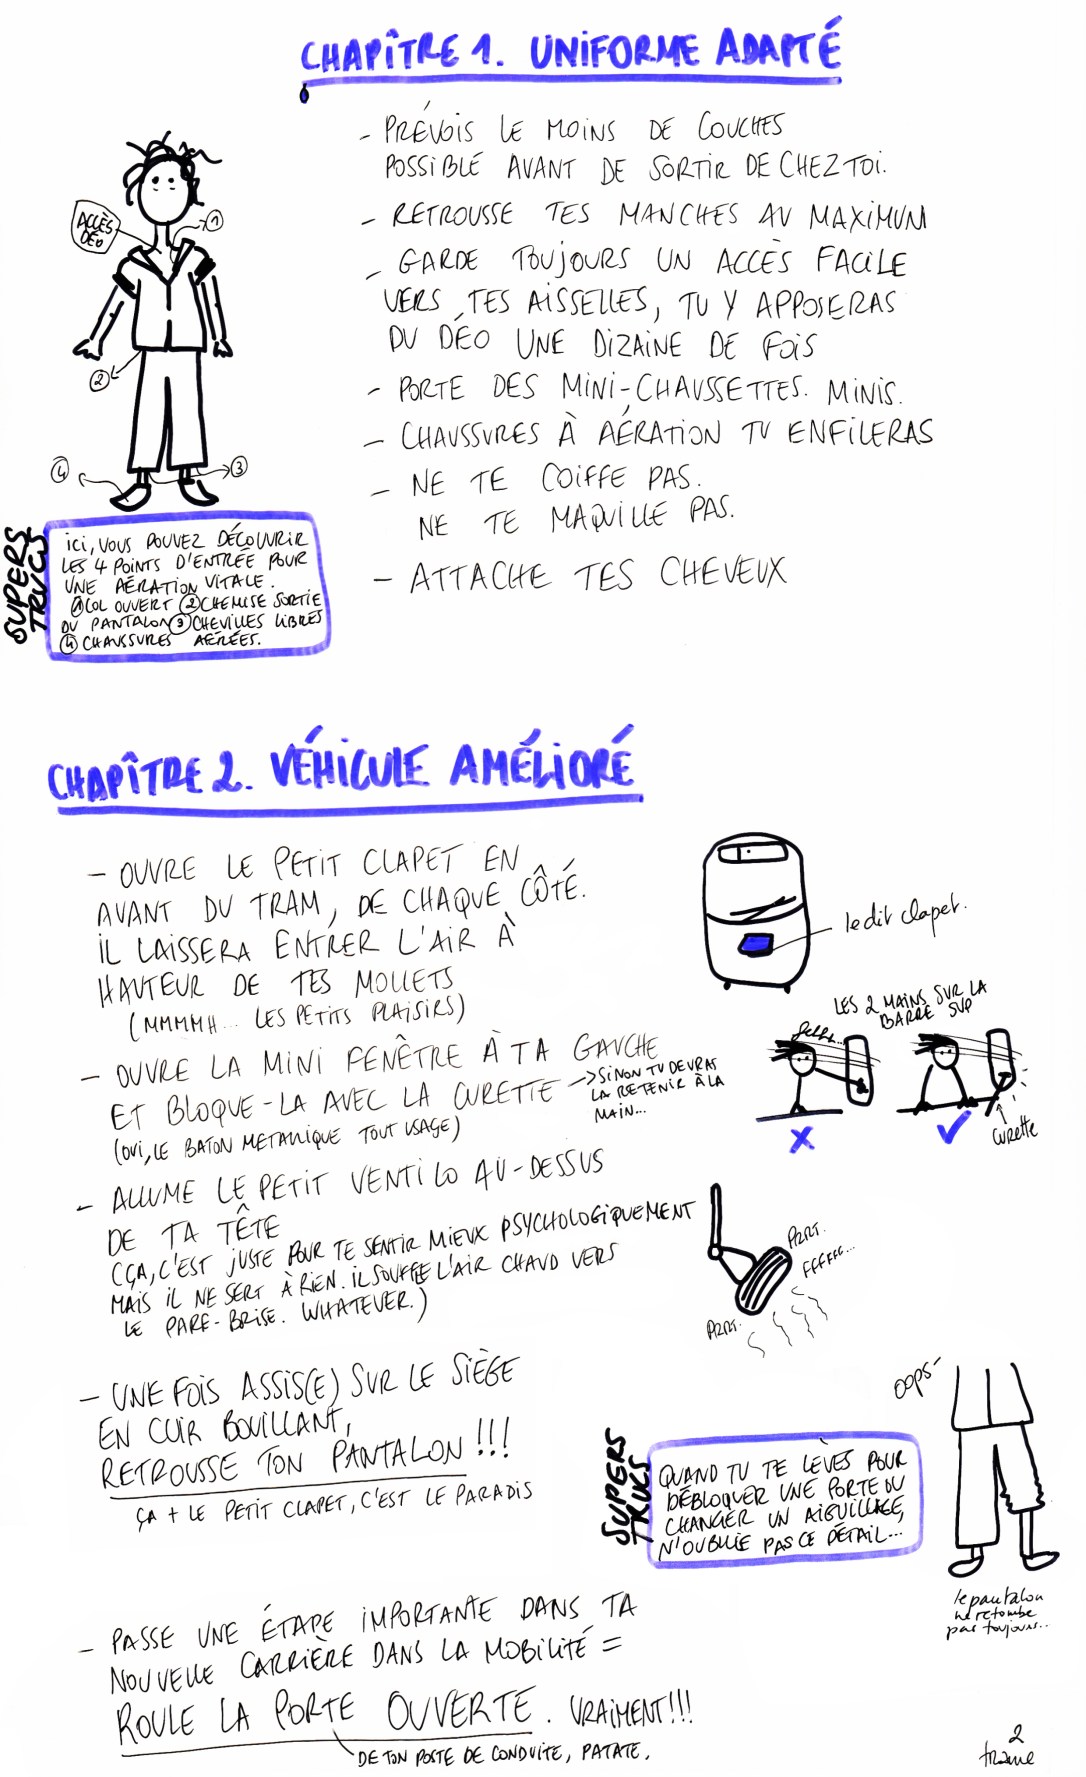 CHAPÎTRE 1. UNIFORME ADAPTÉ
- PRÉVOIS LE MOINS DE COUCHES
POSSIBLE AVANT DE SORTIR DE CHEZ TOI.
- RETROUSSE TES MANCHES AU MAXIMUM
- GARDE TOUJOURS UN ACCÈS FACILE
VERS TES AISSELLES, TU Y APPOSERAS
DU DÉO UNE DIZAINE DE FOIS
- PORTE DES MINI-CHAUSSETTES. MINIS.
- CHAUSSURES À AÉRATION TU ENFILERAS
- NE TE COIFFE PAS.
NE TE MAQUILLE PAS.
- ATTACHE TES CHEVEUX
ACCÈS
DÉO
1
2
3
4
SUPERS
TRUCS
ICI, VOUS POUVEZ DÉCOUVRIR
LES 4 POINTS D'ENTRÉE POUR
UNE AÉRATION VITALE.
1 COL OUVERT 2 CHEMISE SORTIE
DU PANTALON 3 CHEVILLES LIBRES
4 CHAUSSURES AÉRÉES.
CHAPÎTRE 2. VÉHICULE AMÉLIORÉ
- OUVRE LE PETIT CLAPET EN
AVANT DU TRAM, DE CHAQUE CÔTÉ.
IL LAISSERA ENTRER L'AIR À
HAUTEUR DE TES MOLLETS
(MMMMH... LES PETITS PLAISIRS)
le dit clapet.
- OUVRE LA MINI FENÊTRE À TA GAUCHE
ET BLOQUE-LA AVEC LA CURETTE
(OUI, LE BATON METALLIQUE TOUT USAGE)
-> SINON TU DEVRAS
LA RETENIR À LA
MAIN...
LES 2 MAINS SUR LA
BARRE SUP
curette
- ALLUME LE PETIT VENTILO AU-DESSUS
DE TA TÊTE
(ÇA, C'EST JUSTE POUR TE SENTIR MIEUX PSYCHOLOGIQUEMENT
MAIS IL NE SERT À RIEN. IL SOUFFLE L'AIR CHAUD VERS
LE PARE-BRISE. WHATEVER.)
PRRT.
FFFFFF...
PRRT.
- UNE FOIS ASSIS(E) SUR LE SIÈGE
EN CUIR BOUILLANT,
RETROUSSE TON PANTALON !!!
ÇA + LE PETIT CLAPET, C'EST LE PARADIS
SUPERS
TRUCS
QUAND TU TE LÈVES POUR
DÉBLOQUER UNE PORTE OU
CHANGER UN AIGUILLAGE,
N'OUBLIE PAS CE DÉTAIL...
OOPS
le pantalon
ne retombe
pas toujours...
- PASSE UNE ÉTAPE IMPORTANTE DANS TA
NOUVELLE CARRIÈRE DANS LA MOBILITÉ =
ROULE LA PORTE OUVERTE. VRAIMENT!!!
DE TON POSTE DE CONDUITE, PATATE.
2
trame